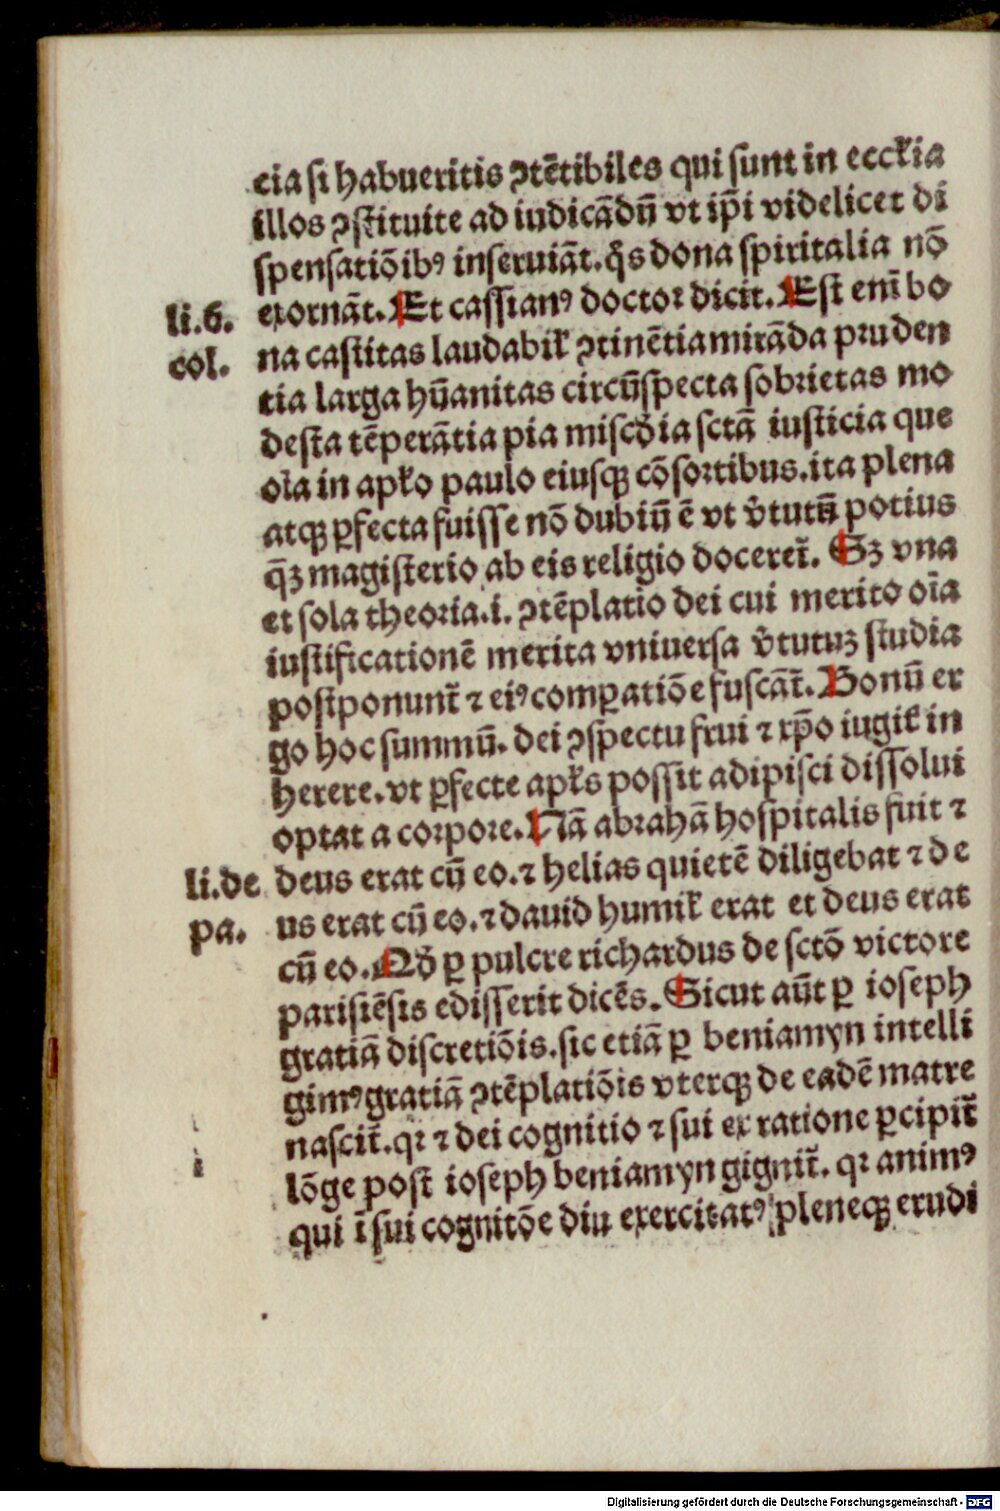 cia si habueritis ꝯtētibiles qui sunt in eccl̄ia
illos ꝯstituite ad iudicādū vt ip̄i videlicet di
spensatiōibꝰ inseruiāt. q̄s dona spiritalia nō
li.6. exornāt. Et cassianꝰ doctor dicit. Est eni̅ bo
col. na castitas laudabil̄ ꝯtinētia mirāda pruden
tia larga hūanitas circūspecta sobrietas mo
desta tēperātia pia miscd̓ia sctā iusticia que
oi̅a in apl̄o paulo eiusqꝫ cōsortibus. ita plena
atqꝫ ꝑfecta fuisse nō dubiū ē vt v̓tutū potius
q̄ꝫ magisterio ab eis religio doceret̄. Sꝫ vna
et sola theoria .i. ꝯtēplatio dei cui merito oi̅a
iustificationē merita vniuersa v̓tutuꝫ studia
postponunt̄ ⁊ eiꝰ comꝑatiōe fuscāt̄. Bonū er
go hoc summū. dei ꝯspectu frui ⁊ xp̄o iugil̄ in
herere. vt ꝑfecte apl̄s possit adipisci dissolui
optat a corpore. Nā abrahā hospitalis fuit ⁊
li.de deus erat cū eo. ⁊ helias quietē diligebat ⁊ de
pa. us erat cū eo. ⁊ dauid humil̄ erat et deus erat
cū eo. Qd̓ ꝑ pulcre richardus de sctō victore
parisiēsis edisserit dicēs. Sicut aūt ꝑ ioseph
gratiā discretiōis. sic etiā ꝑ beniamyn intelli
gimꝰ gratiā ꝯtēplatiōis vterqꝫ de eadē matre
nascit̄. qꝛ ⁊ dei cognitio ⁊ sui ex ratione ꝑcipit̄
lōge post ioseph beniamyn gignit̄. qꝛ animꝰ
qui ī sui cognitōe diu exercitatꝰ pleneqꝫ erudi
Digitalisierung gefördert durch die Deutsche Forschungsgemeinschaft - DFG